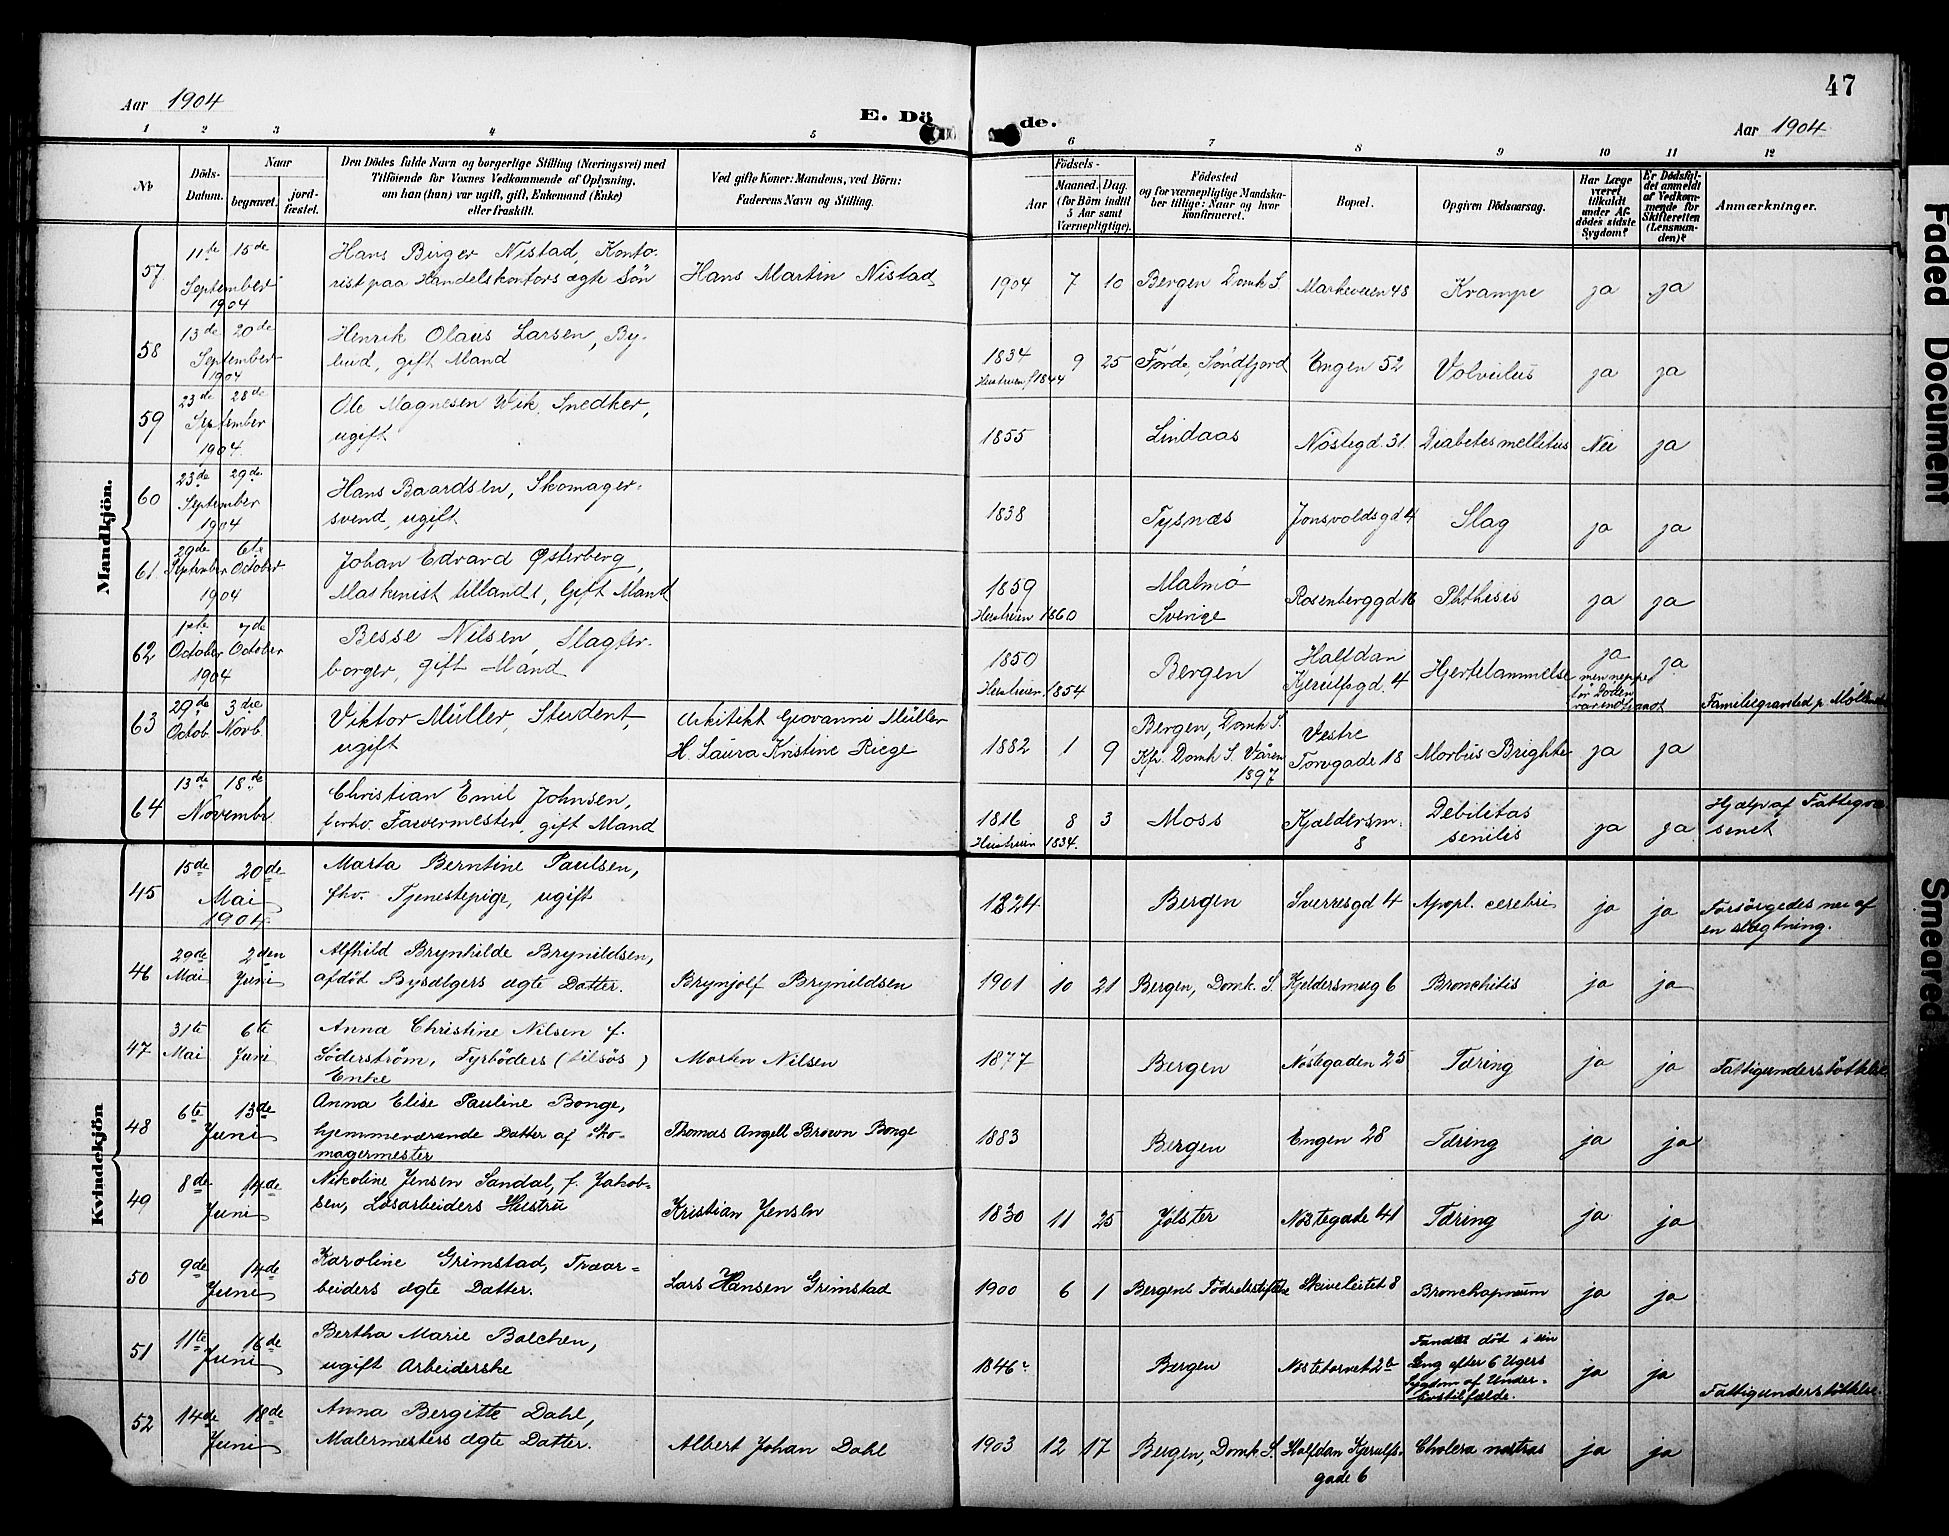 47
Aar 1904
E. Dö
de.
Aar 1904
1 2 3 4 5 6 7 8 9 10 11 12
No
Döds-Datum.
Naar
begravet.
jord-fæstet.
Den Dödes fulde Navn og borgerlige Stilling (Næringsvei) med
Tilföiende for Voxnes Vedkommende af Oplysning,
om han (hun) var ugift, gift, Enkemand (Enke)
eller fraskilt.
Ved gifte Koner: Mandens, ved Börn:
Faderens Navn og Stilling.
Födsels-
Aar
Maaned. Dag.
(for Börn indtil
5 Aar samt
Værnepligtige).
Födested
og for værnepligtige Mandska-
ber tillige: Naar og hvor
konfirmeret.
Bopæl.
Opgiven Dödsaarsag.
Har Læge
været
tilkaldt
under Af-
dödes sidste
Sygdom?
Er Dödsfal-
det anmeldt
af Vedkom-
mende for
Skifteretten
(Lensman-
den)?
Anmærkninger.
Mandkjön.
57 11te 15de Hans Birger Nistad, Konto-
September 1904 rist paa Handelskontors ægte Sön Hans Martin Nistad 1904 7 10 Bergen Domk S. Markeveien 48 Krampe ja ja
58 13de 20de Henrik Olaus Larsen, By-
September 1904 bud, gift Mand 1834 9 25 Førde, Söndfjord Engen 52 Volvulus ja ja
Hustruen f 1844
59 23de 28de Ole Magnesen Wik, Snedker,
September 1904 ugift 1855 Lindaas Nöstegd. 31 Diabetes mellitus Nei ja
60 23de 29de Hans Baardsen, Skomager-
September 1904 svend, ugift 1838 Tysnæs Jonsvoldsgd 4 Slag ja ja
61 29de 6te Johan Edvard Østerberg,
September October 1904 Maskinist tillands, Gift Mand 1859 Malmø Sverige Rosenberggd 16 Phthisis ja ja
Hustruen 1860
62 1ste 7de Besse Nilsen, Slagter-
October October 1904 borger, gift Mand 1850 Bergen Halfdan Kjerulfsgd. 4 Hjertelammelse ja men neppe før Döden var indtraadt ja
Hustruen 1854 Familiegravsted p.
63 29de 3die Viktor Müller, Student, Arkitekt Giovanni Müller
Octob Novb ugift H. Laura Kristine Riege 1882 1 9 Bergen, Domk S. Kfr. Domk S. Vaaren 1897 Vestre Torvgade 18 Morbus Brightii ja ja
64 13de 18de Christian Emil Johnsen,
Novembr forhv. Farvermester, gift Mand 1816 8 3 Moss Kjeldersm. 8 Debilitas senilis ja ja Hjælp af Fattigvæ-
Hustruen 1834. senet
Kvindekjön
45 15de 20de Marta Berntine Paulsen,
Mai 1904 fhv. Tjenestepige, ugift 1824 Bergen Sverresgd 4 Apopl. cerebri ja ja Forsörgedes nu af
en slægtning.
46 29de 2den Alfhild Brynhilde Brynildsen,
Mai Juni afdöt Bysælgers ægte Datter. Brynjolf Brynildsen 1901 10 21 Bergen, Domk. S. Kjeldersmug 6 Bronchitis ja ja
47 31te 6te Anna Christine Nilsen f.
Mai Juni Söderström, Fyrböders (tilsös) Morten Nilsen 1877 Bergen Nöstegaden 25 Tæring ja ja Fattigunderstöttelse
Enke
48 6te 13de Anna Elise Pauline Bonge,
Juni hjemmeværende Datter af Sko- Thomas Angell Brown Bonge 1883 Bergen Engen 28 Tæring ja ja
magermester
49 8de 14de Nikoline Jensen Sandal, f. Jakob-
Juni sen, Lösarbeiders Hustru Kristian Jensen 1830 11 25 Jölster Nöstegade 41 Tæring ja ja
50 9de 14de Karoline Grimstad, Træar-
Juni beiders ægte Datter. Lars Hansen Grimstad 1900 6 1 Bergens Födselsstiftelse 8 Bronchopneum ja ja
51 11te 16de Bertha Marie Balchen,
Juni ugift Arbeiderske 1846 Bergen Nöstetorvet 2b Fandtes död i sin
Seng efter 6 Ugers
Sygdom af Under-
livstilfælde. ja ja Fattigunderstöttelse.
52 14de 18de Anna Bergitte Dahl,
Juni Malermesters ægte Datter. Albert Johan Dahl 1903 12 17 Bergen, Domk. S. Halfdan Kjerulfs- Cholera nostras ja ja
gade 6
Faded Document
Smeared